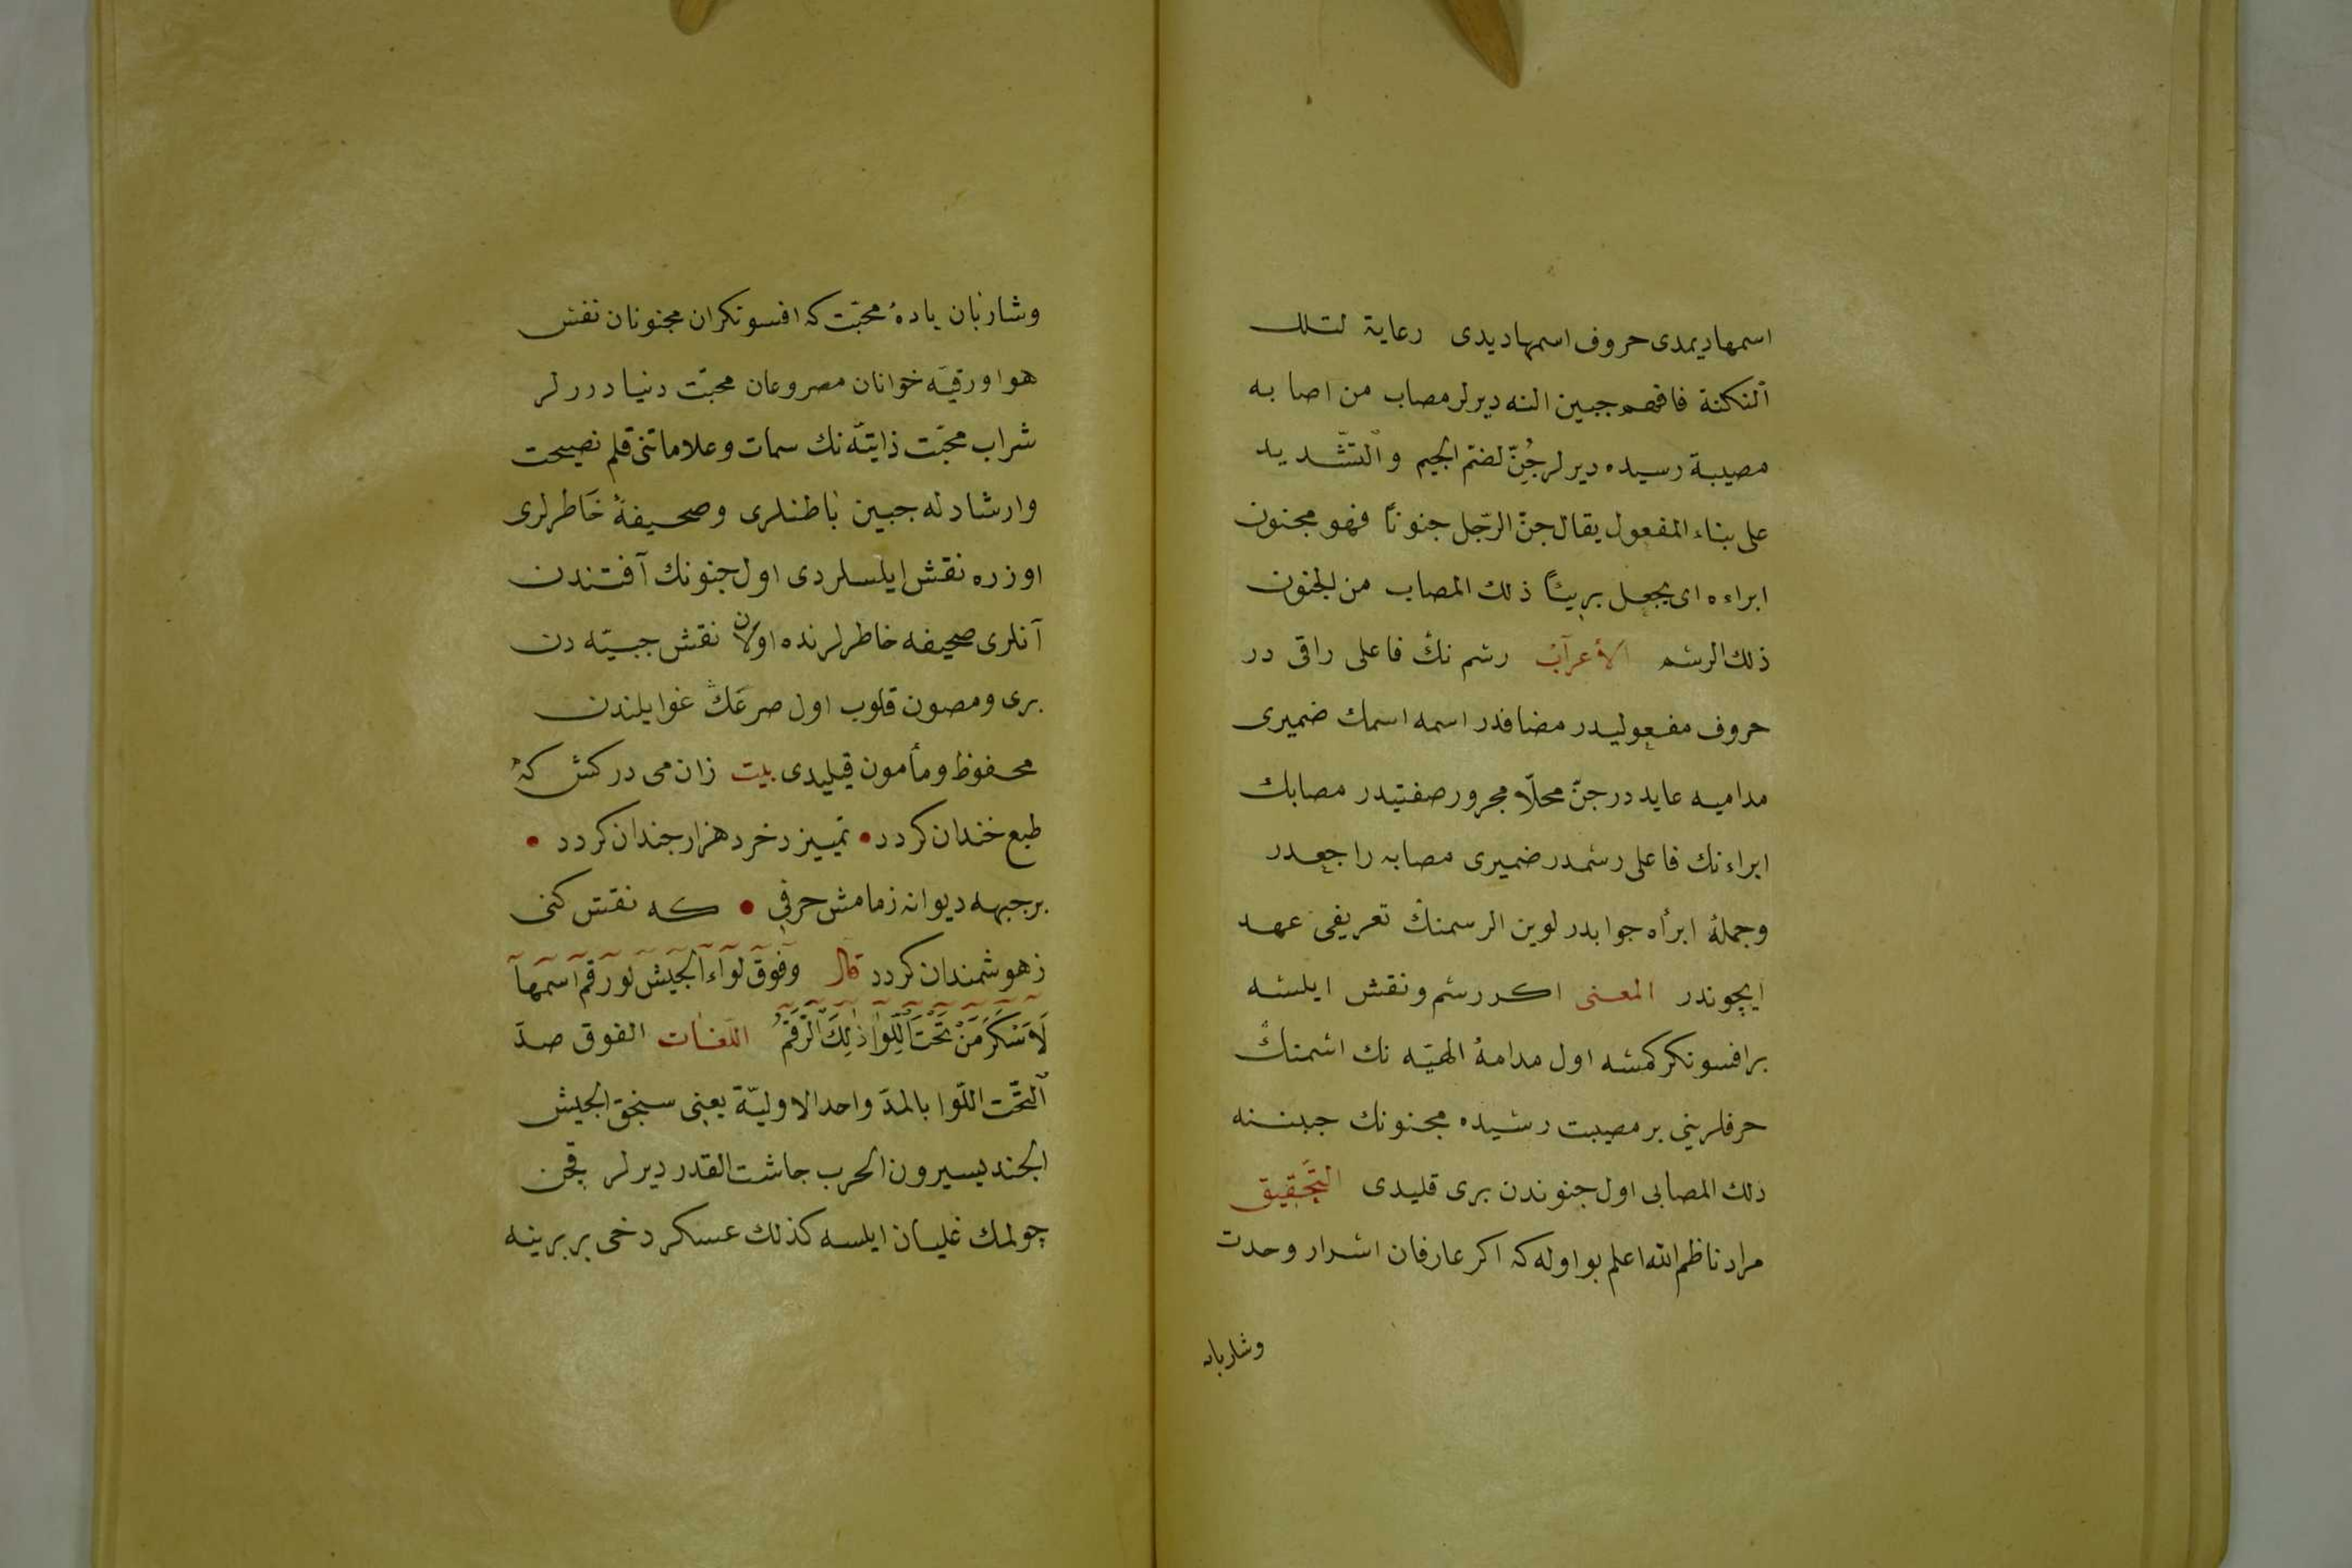 اسمها دیمدی حروف اسمها دیدی رعایة لتلك
النكتة فافهم جبین النه دیرلر مصاب من اصابه
مصیبة رسیده دیرلر جُنّ لضم الجیم والتشدید
علی بناء المفعول یقال جنّ الرّجل جنوناً فهو مجنون
ابراءه ای یجعل بریئاً ذلك المصاب من الجنون
ذلك الرشم الأعراب رشم نك فاعلی راقی در
حروف مفعولیدر مضافدر اسمه اسمك ضمیری
مدامیه عایددر جنّ محلّا مجرور صفتیدر مصابك
ابراءنك فاعلی رشمدر ضمیری مصابه راجعدر
وجملهٔ ابرأه جوابدر لوین الرسمنك تعریفی عهد
ایچوندر المعنی اكر رشم ونقش ایلسه
بر افسونكر كمسه اول مدامهٔ الهیّه نك اسمنك
حرفلرینی بر مصیبت رسیده مجنونك جبننه
ذلك المصابی اول جنوندن بری قلیدی التحقیق
مراد ناظم الله اعلم بو اوله كه اكر عارفان اسرار وحدت
وشاربان
وشاربان بادهٔ محبّت كه افسونكران مجنونان نفس
هوا ورقیه خوانان مصروعان محبّت دنیا دررلر
شراب محبّت ذاتیّه نك سمات وعلاماتنی قلم نصیحت
وارشادله جبین باطنلری وصحیفهٔ خاطرلری
اوزره نقش ایلسلردی اول جنونك آفتندن
آنلری صحیفه خاطرلرنده اولان نقش جبیّه دن
بری ومصون قلوب اول صرعك غوایلندن
محفوظ ومأمون قیلیدی بیت زان می دركش كه
طبع خندان كردد • تمییز دخرد هزار جندان كردد •
بر جبهه دیوانه زمامش حرفی • كه نقش كنی
زهوشمندان كردد قال وفوق لواء الجیش لو رقم اسمها
لاسكر من تحت اللوا ذلك الرقم اللغات الفوق ضدّ
التّحت اللّوا بالمدّ واحد الاولیّة یعنی سنجق الجیش
الجند یسیرون الحرب جاشت القدر دیرلر قچن
چولمك غلیان ایلسه كذلك عسكر دخی بر برینه